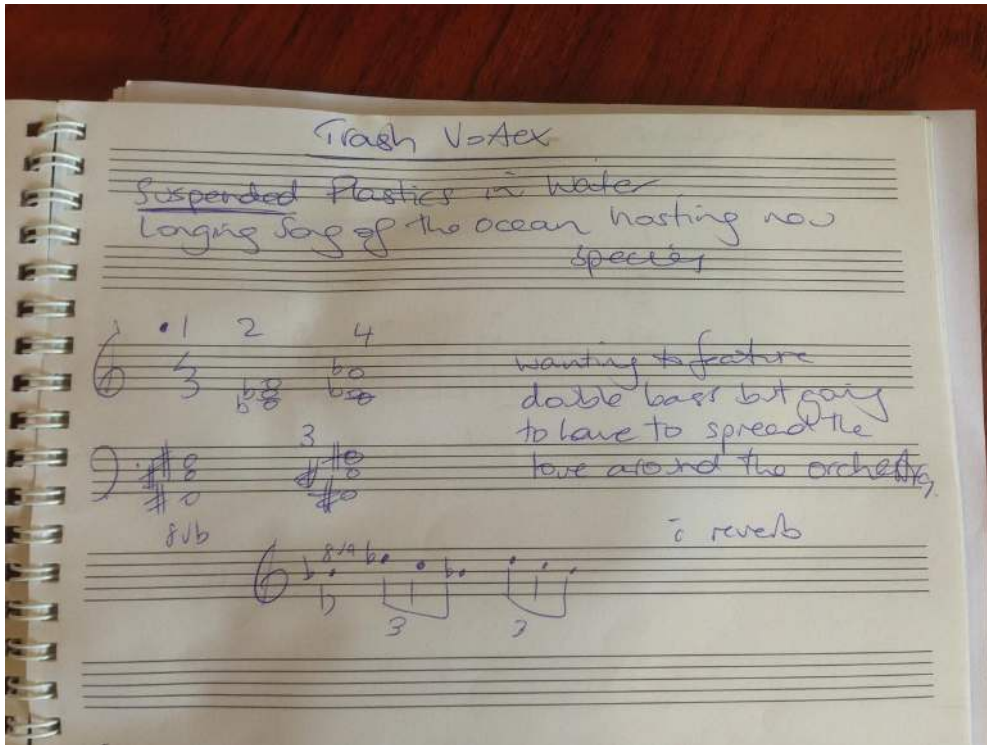 Trash Vortex
Suspended Plastics in Water
Longing Song of the ocean hosting new
species
1 2 4
wanting to feature
double bass but going
to have to spread the
3
love around the orchestra,
8vb
c̄ reverb
8va
3 3